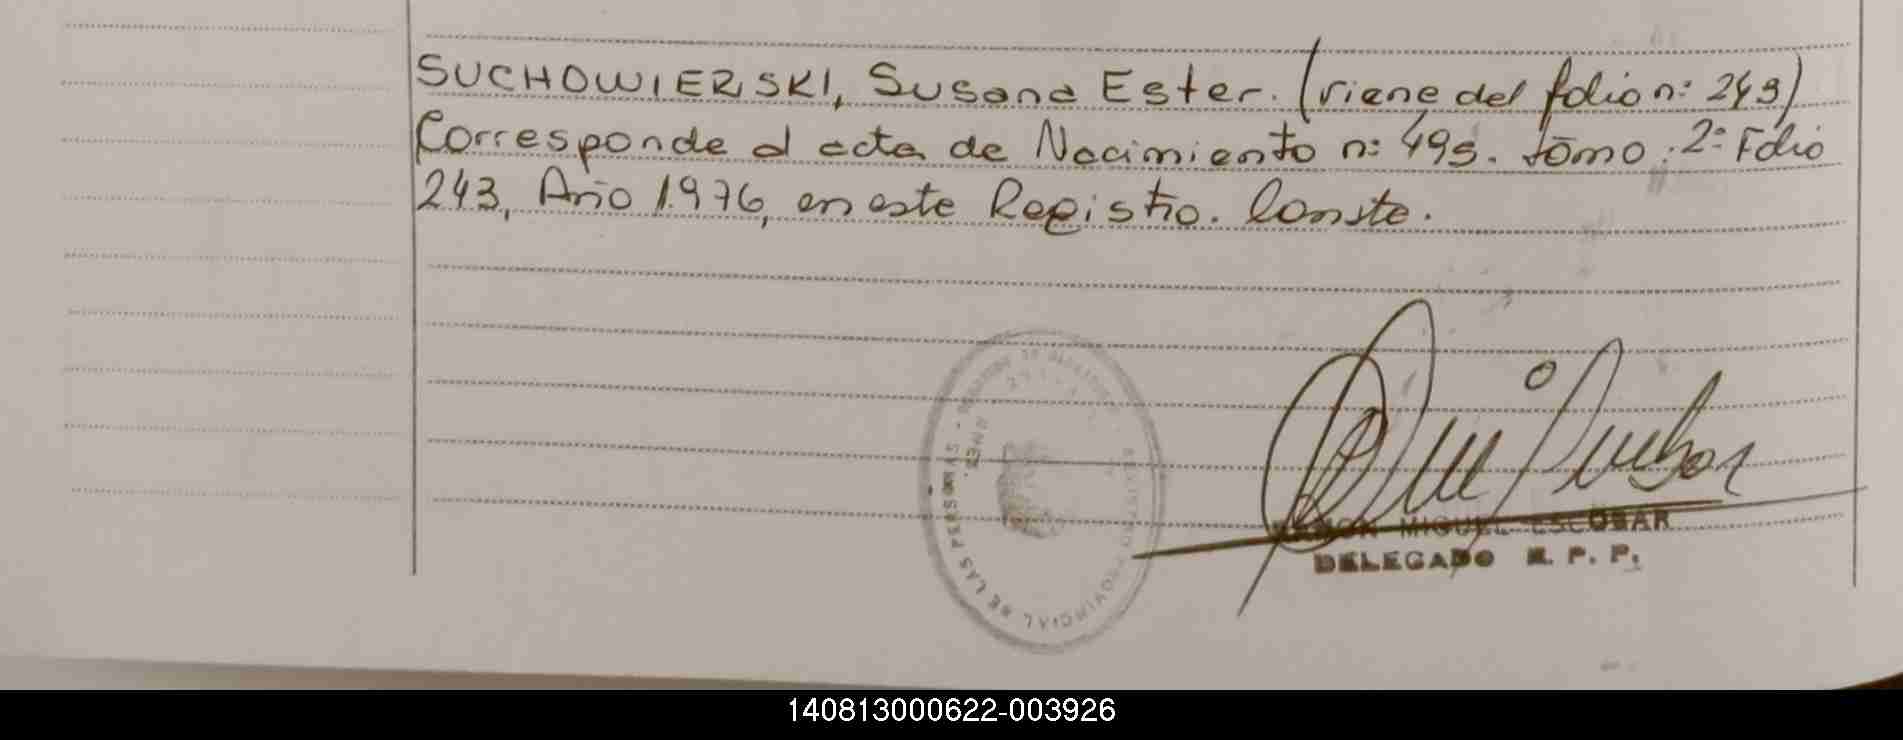 SUCHOWIERSKI, Susana Ester. (viene del folio n: 243)
Corresponde al acta de Nacimiento n: 495. tomo: 2º Folio
243, Año 1.976, en este Registro. Conste.
REGISTRO PROVINCIAL DE LAS PERSONAS
RAMON MIGUEL ESCOBAR
DELEGADO R. P. P.
140813000622-003926